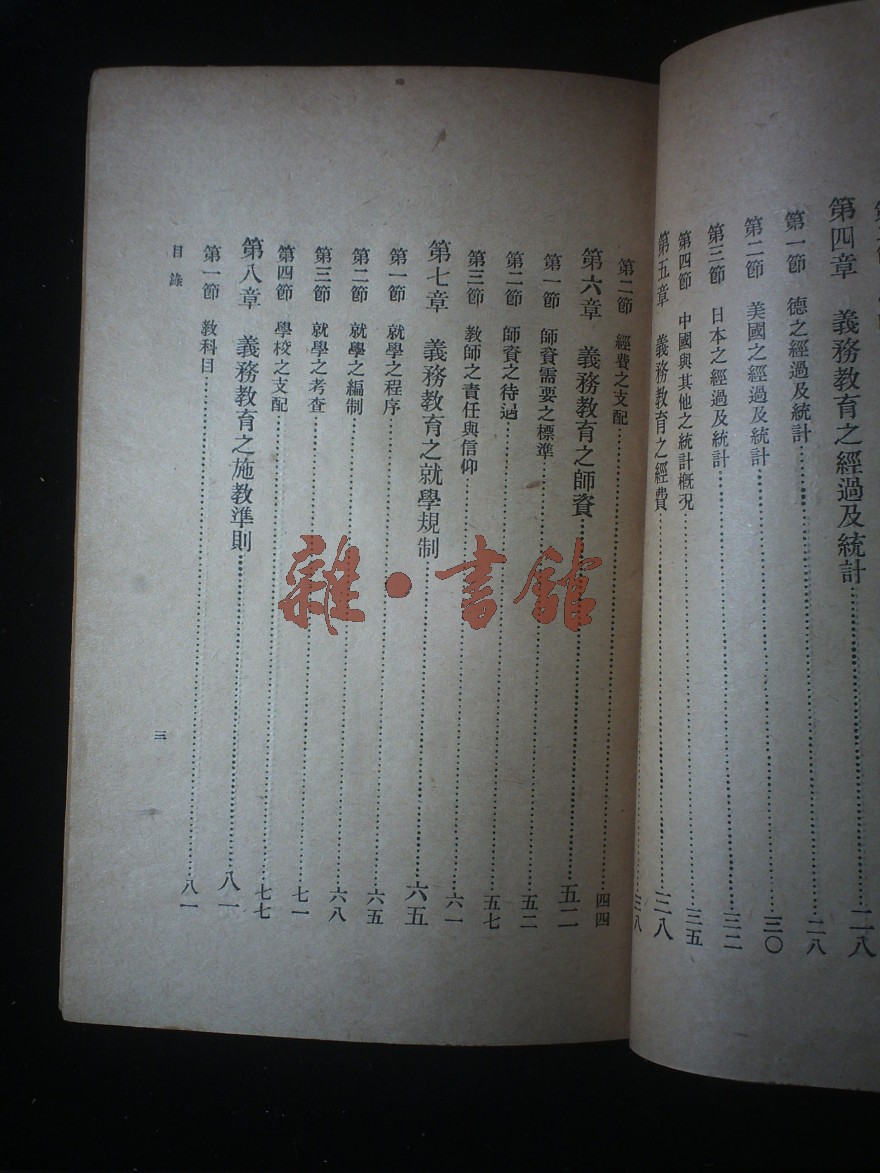 第四章　義務教育之經過及統計……二八
第一節　德之經過及統計……二八
第二節　美國之經過及統計……三〇
第三節　日本之經過及統計……三二
第四節　中國與其他之統計概况……三五
第五章　義務教育之經費……三八
三八
第二節　經費之支配……四四
第六章　義務教育之師資……五二
第一節　師資需要之標準……五二
第二節　師資之待過……五七
第三節　教師之責任與信仰……六一
第七章　義務教育之就學規制……六五
第一節　就學之程序……六五
第二節　就學之編制……六八
第三節　就學之考查……七一
第四節　學校之支配……七七
第八章　義務教育之施教準則……八一
第一節　教科目……八一
目錄
三
雜·書館